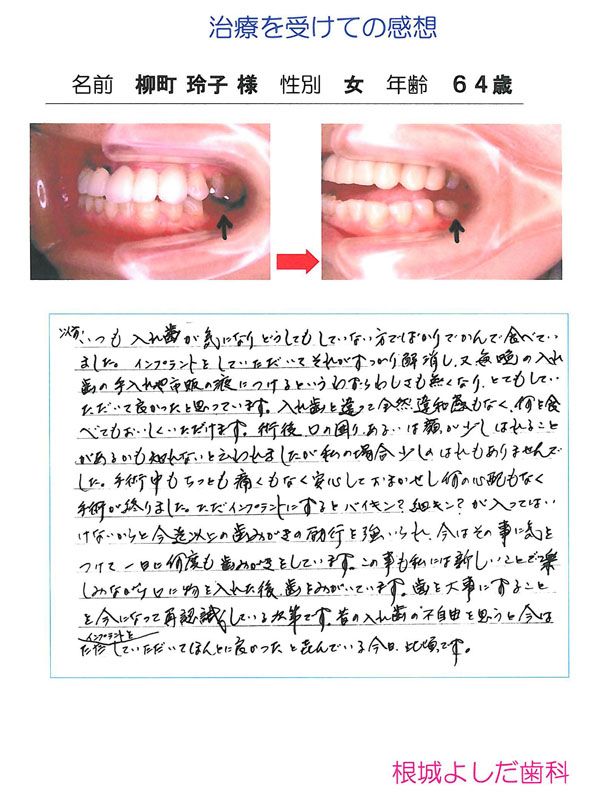 治療を受けての感想
名前 柳町 玲子 様 性別 女 年齢 64歳
以前、いつも入れ歯が気になりどうしてもしていない方でばかりでかんで食べてい
ました。インプラントをしていただいてそれがすっかり解消し、又毎晩の入れ
歯の手入れや市販の液につけるというわずらわしさも無くなり、とてもしてい
ただいて良かったと思っています。入れ歯と違って全然違和感もなく、何を食
べてもおいしくいただけます。術後、口の囲り、あるいは顔が少しはれること
があるかも知れないと云われましたが私の場合少しのはれもありませんで
した。手術中もちっとも痛くもなく安心しておまかせし何の心配もなく
手術が終りました。ただインプラントにするとバイキン?細キン?が入ってはい
けないからと今迄以上の歯みがきの励行を強いられ、今はその事に気を
つけて一日に何度も歯みがきをしています。この事も私には新しいことで楽
しみながら口に物を入れた後、歯をみがいています。歯を大事にすること
を今になって再認識している次第です。昔の入れ歯の不自由を思うと今は
インプラントを
していただいてほんとに良かったと喜んでいる今日此頃です。
根城よしだ歯科